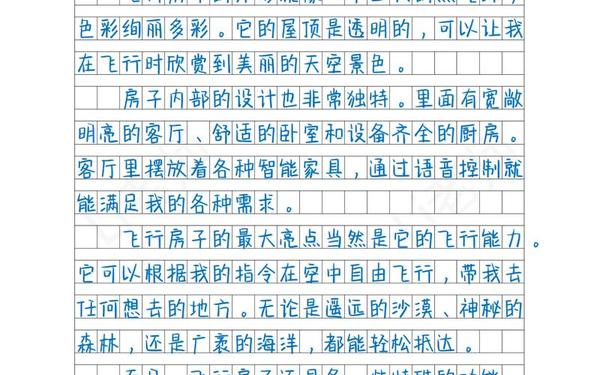 色彩绚丽多彩。它的屋顶是透明的，可以让我
在飞行时欣赏到美丽的天空景色。
房子内部的设计也非常独特。里面有宽敞
明亮的客厅、舒适的卧室和设备齐全的厨房。
客厅里摆放着各种智能家具，通过语音控制就
能满足我的各种需求。
飞行房子的最大亮点当然是它的飞行能力。
它可以根据我的指令在空中自由飞行，带我去
任何想去的地方。无论是遥远的沙漠、神秘的
森林，还是广袤的海洋，都能轻松抵达。